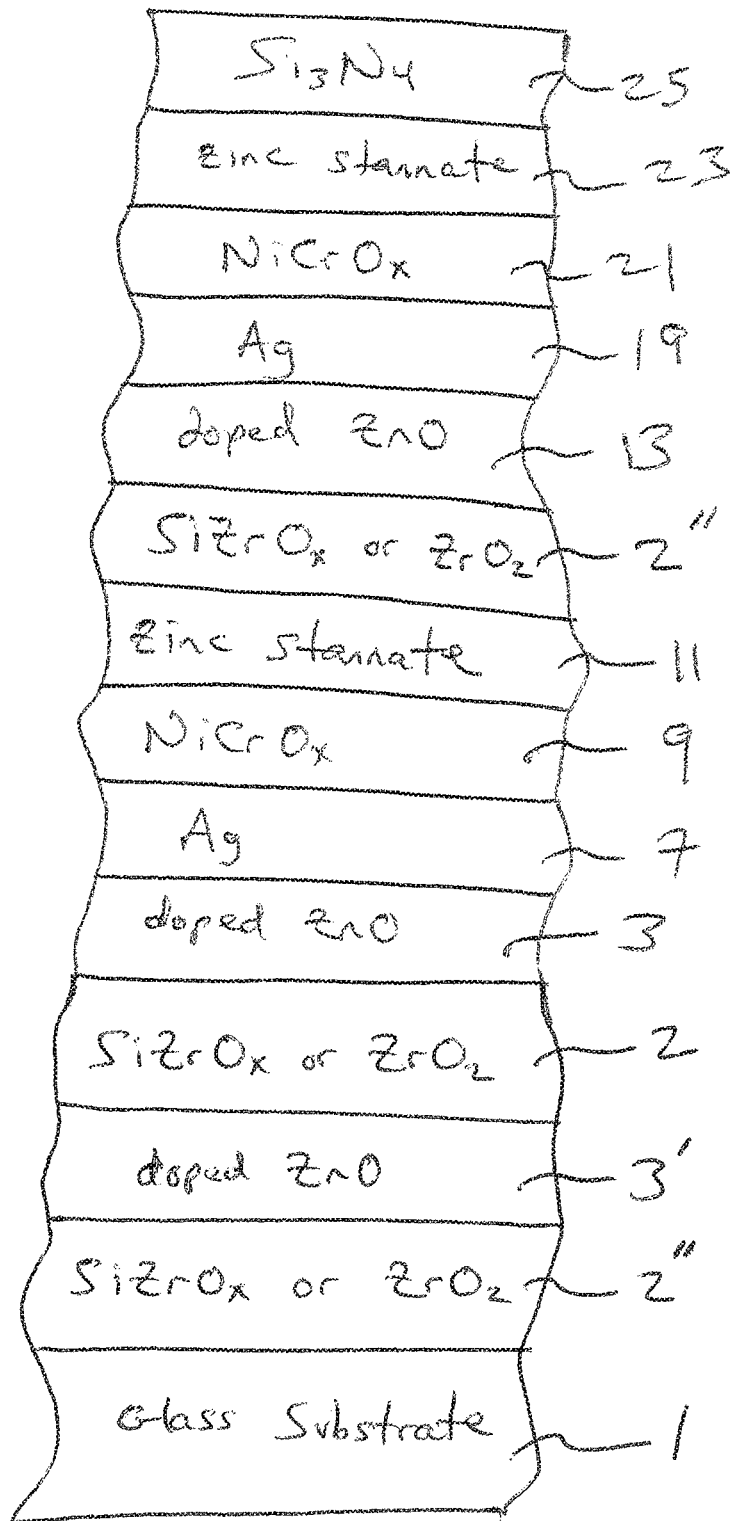 Si3N4 25
zinc stannate 23
NiCrOx 21
Ag 19
doped ZnO 13
SiZrOx or ZrO2 2"
Zinc stannate 11
NiCrOx 9
Ag 7
doped ZnO 3
SiZrOx or ZrO2 2
doped ZnO 3'
SiZrOx or ZrO2 2"
Glass Substrate 1